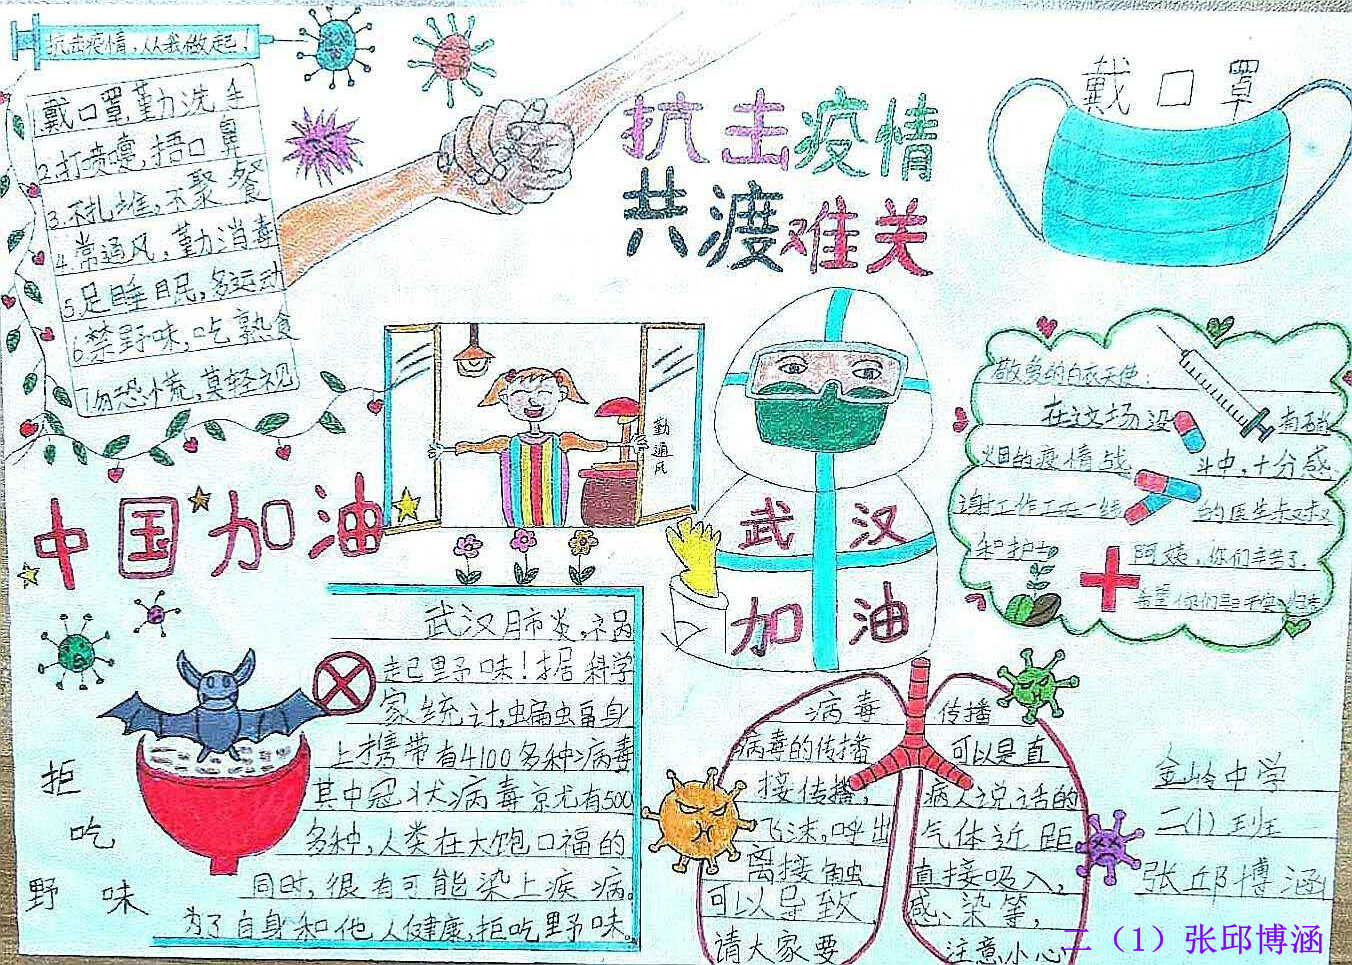 抗击疫情,从我做起!
1.戴口罩勤洗手
2.打喷嚏,捂口鼻
3.不扎堆,不聚餐
4.常通风,勤消毒
5.足睡眠,多运动
6.禁野味,吃熟食
7勿恐慌,莫轻视
抗击疫情
共渡难关
戴口罩
勤通风
中国加油
武汉
加油
敬爱的白衣天使:
在这场没有硝
烟的疫情战斗中,十分感
谢工作在一线的医生叔叔
和护士阿姨,你们辛苦了.
希望你们早日平安归来
武汉肺炎,祸
起野味!据科学
家统计,蝙蝠身
上携带有4100多种病毒
其中冠状病毒竟尤有500
多种,人类在大饱口福的
同时,很有可能染上疾病。
为了自身和他人健康,拒吃野味。
拒
吃
野味
病毒传播
病毒的传播可以是直
接传播,病人说话的
飞沫,呼出气体近距
离接触直接吸入,
可以导致感染等,
请大家要注意小心
金岭中学
二(1)班
张邱博涵
二（1）张邱博涵